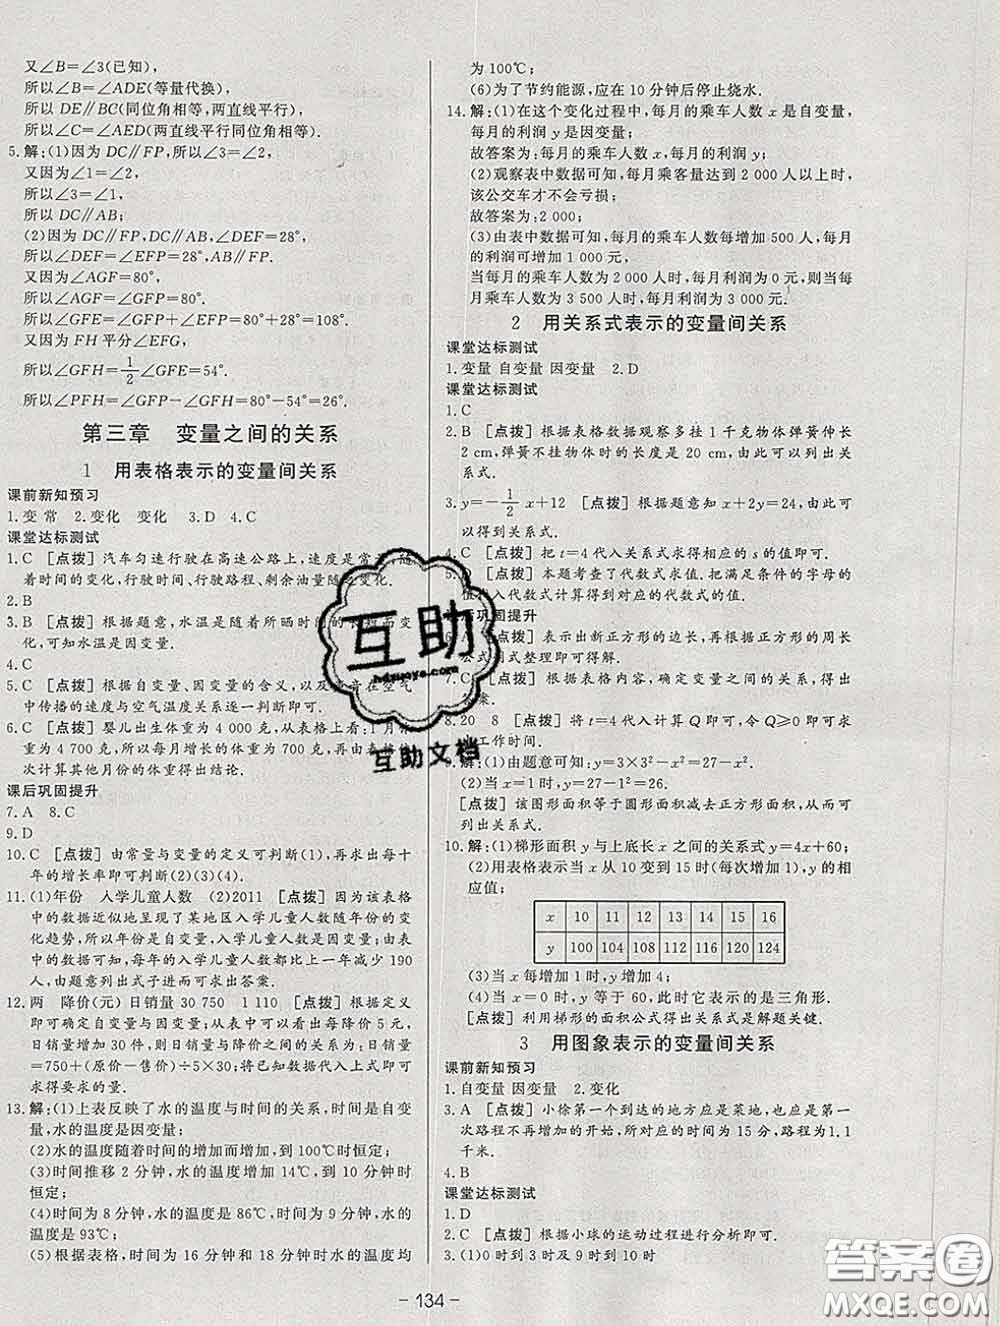 又∠B=∠3(已知),
所以∠B=∠ADE(等量代换),
所以 DE∥BC(同位角相等,两直线平行),
所以∠C=∠AED(两直线平行同位角相等).
5.解:(1)因为 DC∥FP,所以∠3=∠2,
又因为∠1=∠2,
所以∠3=∠1,
所以 DC∥AB;
(2)因为 DC∥FP,DC∥AB,∠DEF=28°,
所以∠DEF=∠EFP=28°,AB∥FP.
又因为∠AGF=80°,
所以∠AGF=∠GFP=80°,
所以∠GFE=∠GFP+∠EFP=80°+28°=108°.
又因为 FH 平分∠EFG,
所以∠GFH=1/2∠GFE=54°,
所以∠PFH=∠GFP-∠GFH=80°-54°=26°.
第三章 变量之间的关系
1 用表格表示的变量间关系
课前新知预习
1.变 常 2.变化 变化 3.D 4.C
课堂达标测试
1.C [点拨] 汽车匀速行驶在高速公路上,速度是常
着时间的变化,行驶时间、行驶路程、剩余油量随之变化.
2.B
3.B [点拨] 根据题意,水温是随着所晒时间的长短而变
化,可知水温是因变量.
4.C
5.C [点拨] 根据自变量、因变量的含义,以及声音在空气
中传播的速度与空气温度关系逐一判断即可.
6.C [点拨] 婴儿出生体重为 4 000 克,从表格上看:1月
重为 4 700 克,所以每月增长的体重为 700 克,再
次计算其他月份的体重得出结论.
课后巩固提升
7.A 8.C
9.D
10.C [点拨] 由常量与变量的定义可判断(1),再求出每十
年的增长率即可判断(2)(3)(4).
11.(1)年份 入学儿童人数 (2)2011 [点拨] 因为该表格
中的数据近似地呈现了某地区入学儿童人数随年份的变
化趋势,所以年份是自变量,入学儿童人数是因变量;由表
中的数据可知,每年的入学儿童人数都比上一年减少 190
人,由题意列出式子进而可求出答案.
12.两 降价(元) 日销量 30 750 1 110 [点拨] 根据定义
即可确定自变量与因变量;从表中可以看出每降价 5 元,
日销量增加 30 件,则可求出降价之前的日销量;日销量
=750+(原价-售价)÷5×30;将数据代入上式即可
求得要求的量.
13.解:(1)上表反映了水的温度与时间的关系,时间是自变
量,水的温度是因变量;
(2)水的温度随着时间的增加而增加,到 100℃时恒定;
(3)时间推移 2 分钟,水的温度增加 14℃,到 10 分钟时
恒定;
(4)时间为 8 分钟,水的温度是 86℃,时间为 9 分钟,水
的温度是 93℃;
(5)根据表格,时间为 16 分钟和 18 分钟时水的温度均
为 100℃;
(6)为了节约能源,应在 10 分钟后停止烧水.
14.解:(1)在这个变化过程中,每月的乘车人数 x 是自变量,
每月的利润 y 是因变量;
故答案为:每月的乘车人数 x,每月的利润 y;
(2)观察表中数据可知,每月乘客量达到 2 000 人以上时,
该公交车才不会亏损;
故答案为:2 000;
(3)由表中数据可知,每月的乘车人数每增加 500 人,每月
的利润可增加 1 000 元,
当每月的乘车人数为 2 000 人时,每月利润为 0 元,则当
每月乘车人数为 3 500 人时,每月利润为 3 000 元.
2 用关系式表示的变量间关系
课堂达标测试
1.变量 自变量 因变量 2.D
课堂达标测试
1.C
2.B [点拨] 根据表格数据观察多挂 1 千克物体弹簧伸长
2 cm,弹簧不挂物体时的长度是 20 cm,由此可以得出关
系式.
3.y=-1/2x+12 [点拨] 根据题意可知 x+2y=24,由此可
以得到关系式.
4.C [点拨] 把 t=4 代入关系式求得相应的 s 的值即可.
5. [点拨] 本题考查了代数式求值.把满足条件的字母的
值代入代数式计算得到对应的代数式的值.
课后巩固提升
6.A [点拨] 表示出新正方形的边长,再根据正方形的周长
公式列式整理即可得解.
7.C [点拨] 根据表格内容,确定变量之间的关系,选择
答案.
8.20 8 [点拨] 将 t=4 代入计算 Q 即可,令 Q≥0 即可求
工作时间.
9.解:(1)由题意可知:y=3×3²-x²=27-x².
(2)当 x=1 时,y=27-1²=26.
[点拨] 该图形面积等于圆形面积减去正方形面积,从而可
列出关系式.
10.解:(1)梯形面积 y 与上底长 x 之间的关系式 y=4x+60;
(2)用表格表示当 x 从 10 变到 15 时(每次增加 1),y 的相
应值;
x 10 11 12 13 14 15 16
y 100 104 108 112 116 120 124
(3)当 x 每增加 1 时,y 增加 4;
(4)当 x=0 时,y 等于 60,此时它表示的是三角形.
[点拨] 利用梯形的面积公式得出关系式是解题关键.
3 用图象表示的变量间关系
课前新知预习
1.自变量 因变量 2.变化
3.A [点拨] 小徐第一个到达的地方应是菜地,也应是第一
次路程不再增加的开始,所对应的时间为 15 分,路程为 1.1
千米.
4.B
课堂达标测试
1.D
2.C [点拨] 根据小球的运动过程进行分析即可.
3.(1)0 时到 3 时及 9 时到 10 时
- 134 -
互助
hdzuoye.com
互助文档
答案圈
MXQE.COM